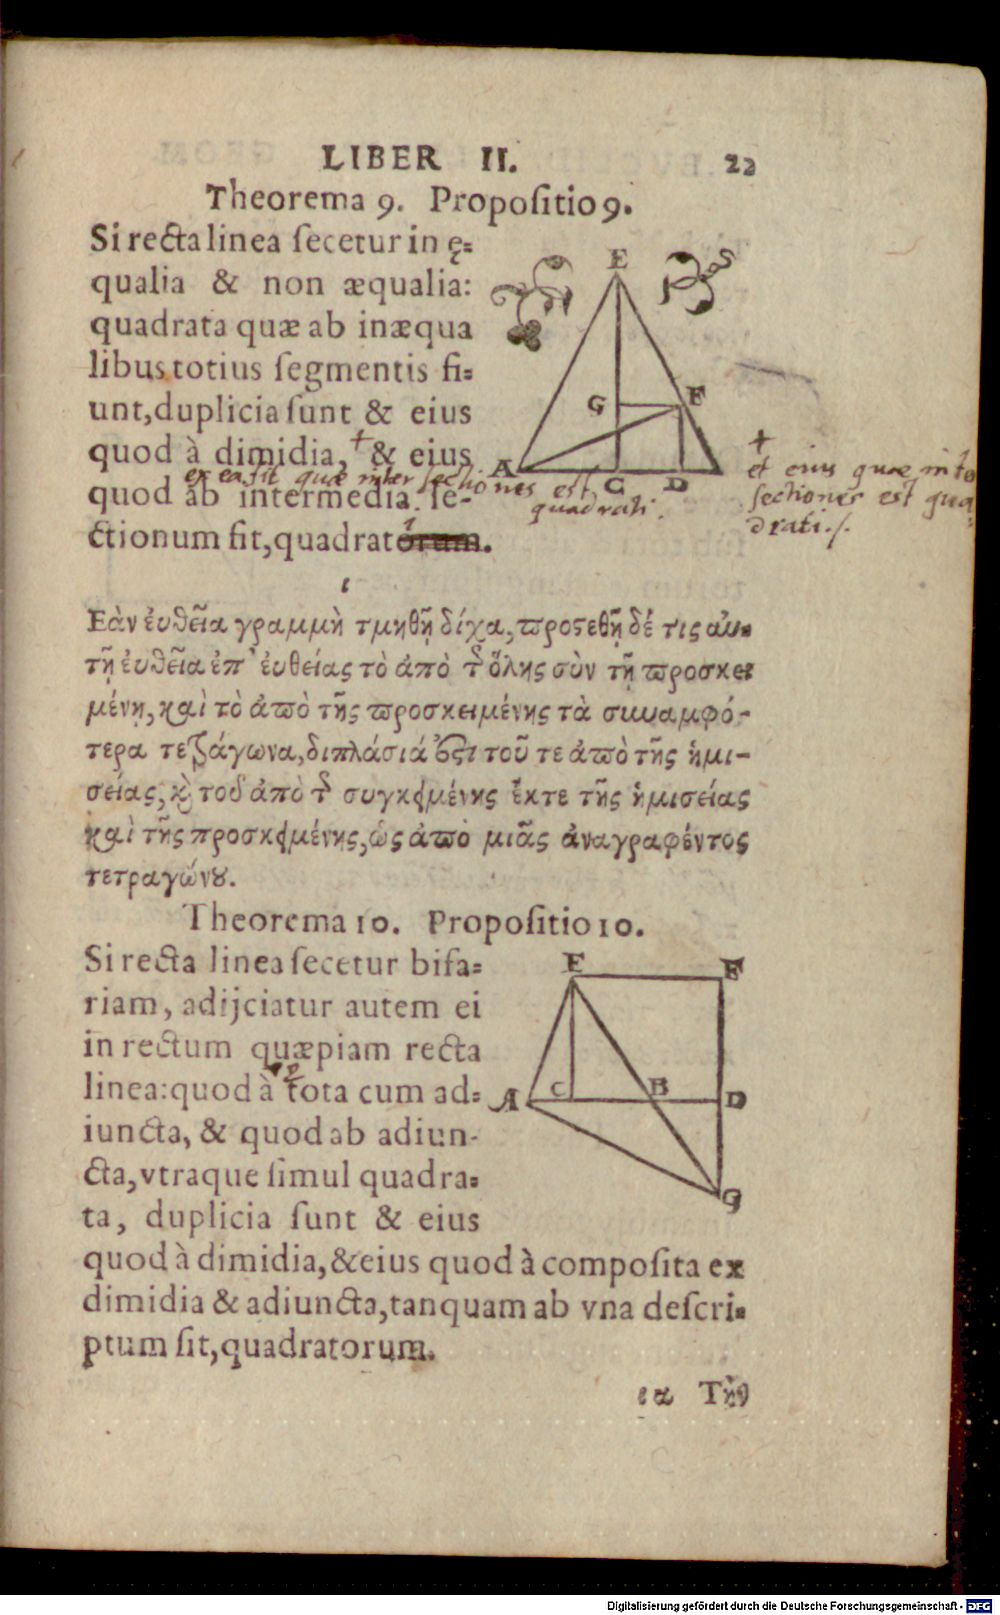 LIBER II. 22
Theorema 9. Propositio 9.
Si recta linea ſecetur in ę=
qualia & non æqualia:
quadrata quæ ab inæqua
libus totius ſegmentis fi=
unt, duplicia ſunt & eius
quod à dimidia, + & eius
ex ea fit quæ inter sectiones est
quadrati.
quod ab intermedia ſe-
ctionum fit, quadratorum.
E
G F
A C D
+
et eius quae inter
sectiones est qua
drati.
ι
Εὰν ἐυθεῖα γραμμὴ τμηθῇ δίχα, προςεθῇ δέ τις αυ=
τῇ ἐυθεῖα ἐπ' ἐυθείας τὸ ἀπὸ τ ὅλης σὺν τῇ προσκει
μένη, καὶ τὸ ἀπὸ τῆς προσκειμένης τὰ συναμφό-
τερα τετράγωνα, διπλάσιά ἐςι τοῦ τε ἀπὸ τῆς ἡμι-
σείας, κ τοῦ ἀπὸ τ συγκειμένης ἔκ τε τῆς ἡμισείας
καὶ τῆς προσκειμένης, ὡς ἀπὸ μιᾶς ἀναγραφέντος
τετραγώνου.
Theorema 10. Propositio 10.
Si recta linea ſecetur bifa=
riam, adijciatur autem ei
in rectum quæpiam recta
linea: quod à tota cum ad=
iuncta, & quod ab adiun-
cta, vtraque ſimul quadra=
ta, duplicia ſunt & eius
quod à dimidia, & eius quod à compoſita ex
dimidia & adiuncta, tanquam ab vna deſcri=
ptum ſit, quadratorum.
E F
A C B D
G
ια Τὴν
Digitalisierung gefördert durch die Deutsche Forschungsgemeinschaft - DFG